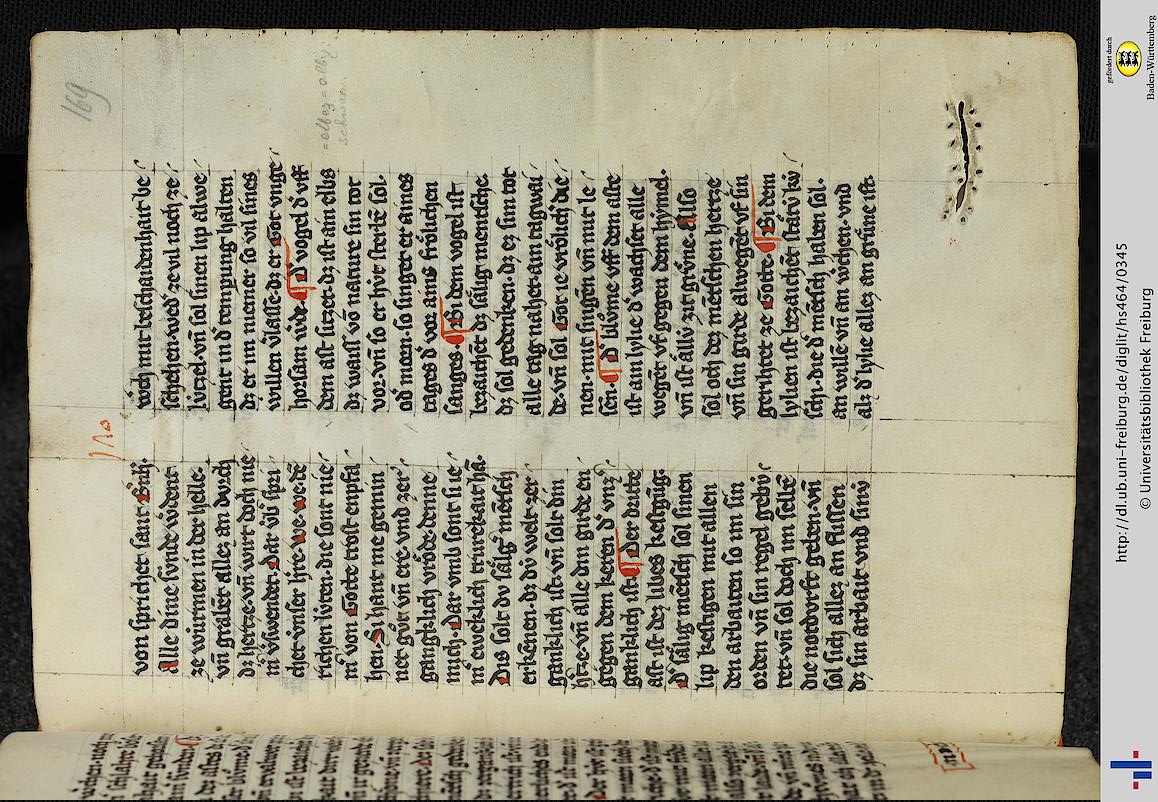 169
=elbez = elbiz
schwan
von sprichet sant Bnh̄.
Alle dine sünde wdent
ze würmen in der helle.
vn̄ grabēt allez an durch
dz hertze. vn̄ wirt doch nie
m̄ v̄swendet. Dar v̄b spri
chet vnser h̄re. we. we. dē
richen lüten. die sont nie
m̄ von Gotte trost enpfa
hen. Si hant me gemin
net gůt vn̄ ere vnd zer
gangklich vröde denne
mich. Dar vmb sont sie
m̄ eweklich trurekait hā.
Dis solt du sälg mētsch
erkēnen. dz dü welt zer
gänklich ist. vn̄ solt din
hitze. vn̄ alle din girde en
gegen dem keren d' vnz
gänklich ist. Der dritte
ast ist dez libes kestigūg.
D' sälig mētsch sol sinen
lip kestigen mit allen
den arbaiten so im sin
orden vn̄ sin regel gebü
tet. vn̄ sol doch im selbē
die nordurft geben. vn̄
sol sich allez an flissen
dz sin arbait vnd sinü
wch mit beschaidenhait be
schehen. wed' ze vil noch ze
lützel. vn̄ sol sinen lip alwe
gent in d' tempung halten
dz er im niemer so vil sines
willen v̄lasse. dz er Got vnge
horsam wde. D' vogel d' vff
dem ast sitzet dz ist ain elbs
dz waiss vō nature sin tot
vor. vn̄ so er hvt sterbē sol.
od' morn. so singet er aines
tages d' vor ains frölichen
sanges. Bi dem vogel ist
bezaichēt dz sälig mentsche.
dz sol gedenken. dz ez sim tot
alle tag nahet. ain tagwai
de. vn̄ sol Got ie vrölich die
nen. mit singen vn̄ mit le
sen. D' blůme vff dem aste
ist ain lylie. d' wachset alle
wegēt vf gegen dem hymel.
vn̄ ist allü zit grüne. Also
sol och dez mētschen hertze
vn̄ sin girde alwegēt vf sin
gerihtet ze Gotte. Bi dem
lylien ist bezaichēt stätü kü
sch. die d' mētsch halten sol.
an willē vn̄ an wchen. vnd
alz d' lylie allez an grüne ist.
gefördert durch
Baden-Württemberg
http://dl.ub.uni-freiburg.de/diglit/hs464/0345
© Universitätsbibliothek Freiburg